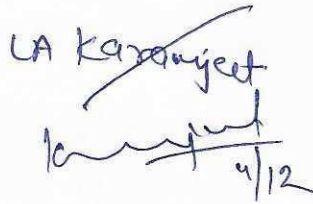 LA Karamjeet
4/12